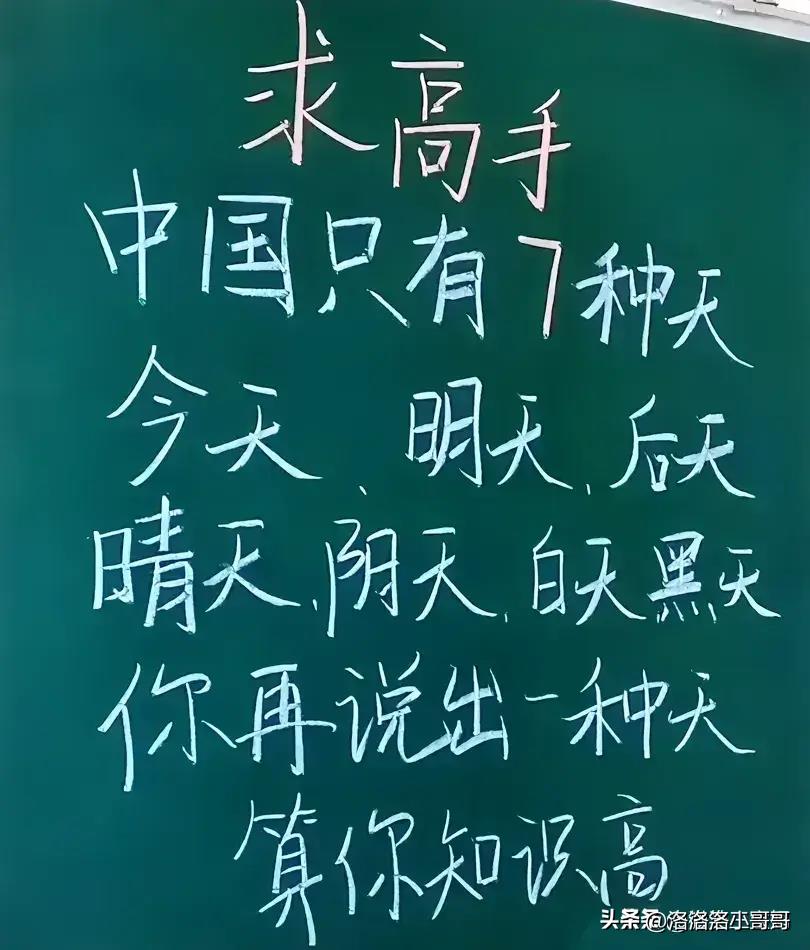 求高手
中国只有7种天
今天、明天、后天
晴天、阴天、白天黑天
你再说出一种天
算你知识高
头条@洛洛洛小哥哥